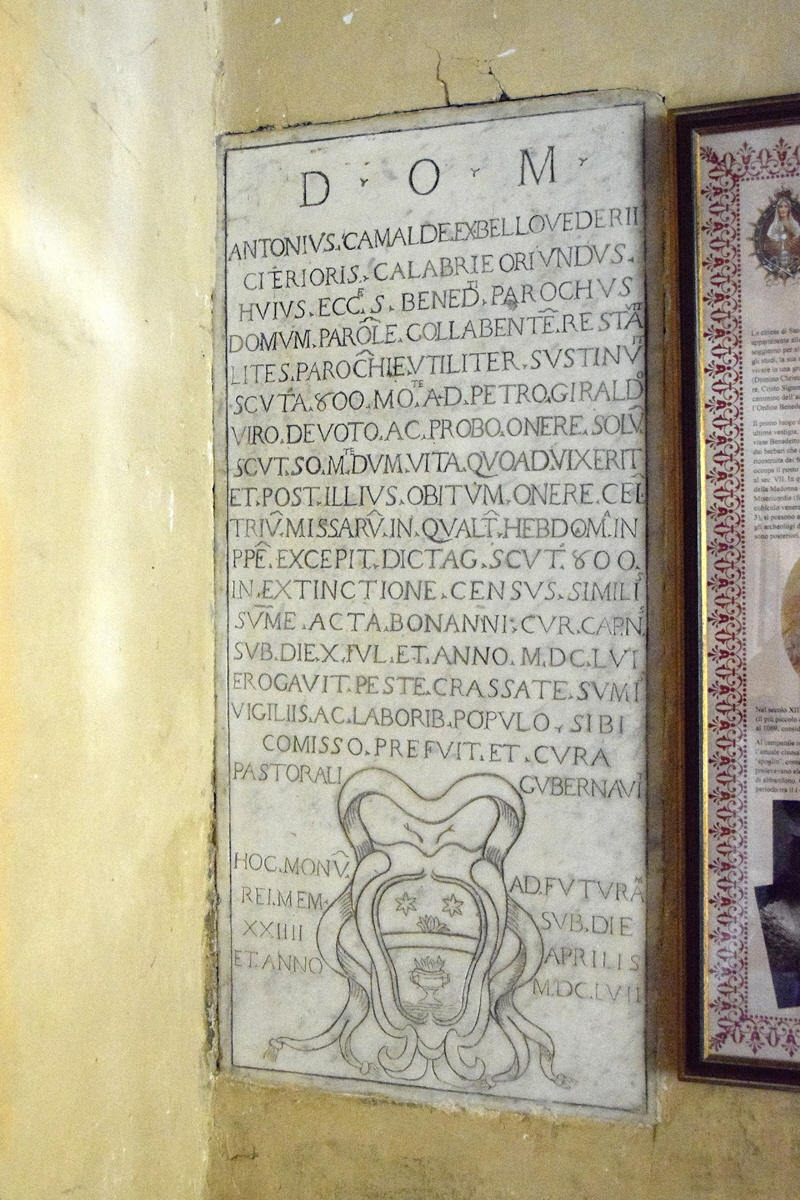 D · O · M ·
ANTONIVS. CAMALDE. EXBELLOVEDERII
CITERIORIS. CALABRIE ORIVNDVS.
HVIVS. ECC.E S. BENED.TI PAROCHVS
DOMVM. PAROL̂E. COLLABENTÊ. RESTAVIT
LITES. PAROCĤIE. VTILITER. SVSTINVIT
SCVTA. 800. MO.TE A. D. PETRO. GIRALDO
VIRO. DEVOTO. AC. PROBO. ONERE. SOLV̂
SCVT. SO. M.TE DVM. VITA. QVOAD. VIXERIT
ET. POST. ILLIVS. OBITVM. ONERE. CEL̂
TRIV̂. MISSARV̂. IN. QVALT̂. HEBDOM̂. IN
PPÊ. EXCEPIT. DICTAG. SCVT. 800.
IN. EXTINCTIONE. CENSVS. SIMILIS
SVME. ACTA. BONANNI. CVR. CAPNS
SVB. DIE. X. IVL. ET. ANNO. M.DC.LVI
EROGAVIT. PESTE. CRASSATE. SVMI
VIGILIIS. AC. LABORIB. POPVLO, SIBI
COMISSO. PREFVIT. ET. CVRA
PASTORALI GVBERNAVIT
HOC. MONV̂. AD. FVTVRAM
REI. MEM. SVB. DIE
XXIIII APRILIS
ET. ANNO M.DC.LVII